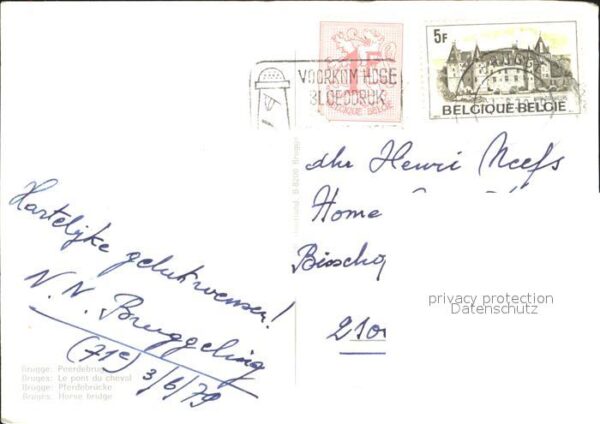 5F
BELGIQUE-BELGIE
1F
BELGIQUE BELGIE
VOORKOM HOGE
BLOEDDRUK
dhr Henri Neefs
Home
privacy protection
Datenschutz
210
Hartelijke gelukwensen!
N.N. Bruggeling
(71e) 3/6/79
Brugge: Peerdebrug
Bruges: Le pont du cheval
Brügge: Pferdebrücke
Bruges: Horse bridge
B-8200 Brugge